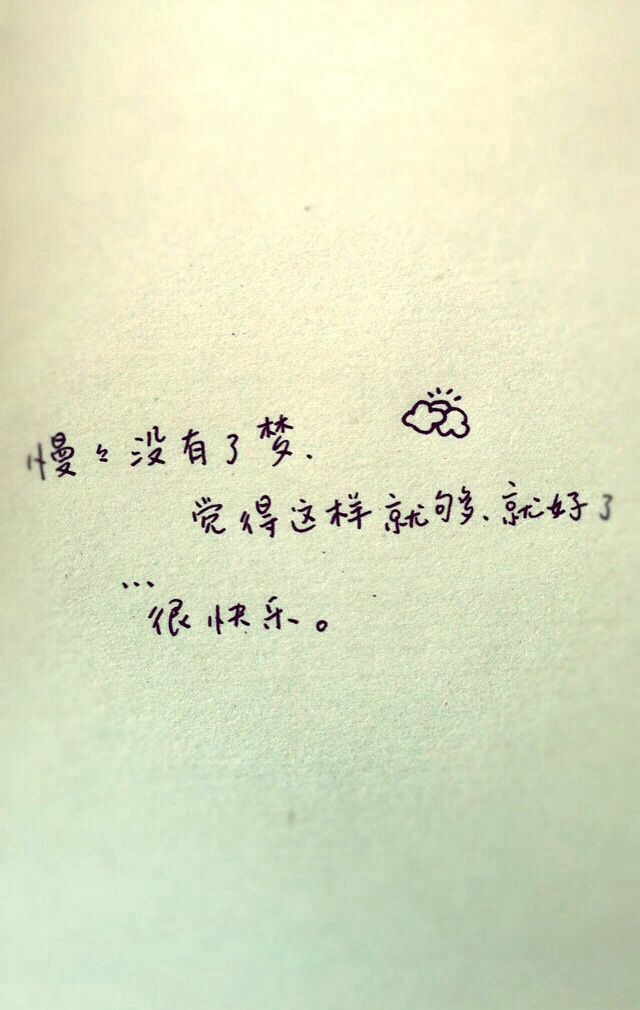 慢々没有了梦.
觉得这样就够、就好了
...
很快乐。